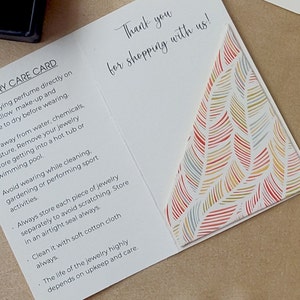 RY CARE CARD
ying perfume directly on
llow make-up and
e to dry before wearing.
away from water, chemicals,
sture. Remove your jewelry
ore getting into a hot tub or
wimming pool.
Avoid wearing while cleaning,
gardening of performing sport
activities.
· Always store each piece of jewelry
separately to avoid scratching. Store
in an airtight seal always.
· Clean it with soft cotton cloth
always.
· The life of the jewelry highly
depends on upkeep and care.
Thank you
for shopping with us!